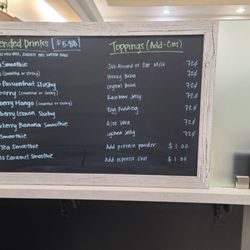 ended Drinks [$5.85] Toppings (Add-Ons)
Smoothie Sub Almond or Oat Milk 72¢
(smoothie or slushy) Honey Boba 72¢
Passionfruit Slushy Crystal Boba 72¢
berry (smoothie or slushy) Rainbow Jelly 72¢
berry Mango (smoothie or slushy) Egg Pudding 72¢
berry Lemon Slushy Aloe Vera 72¢
berry Banana Smoothie Lychee Jelly 72¢
Smoothie Add protein powder $1.00
Tea Smoothie Add espresso shot $1.00
Caramel Smoothie